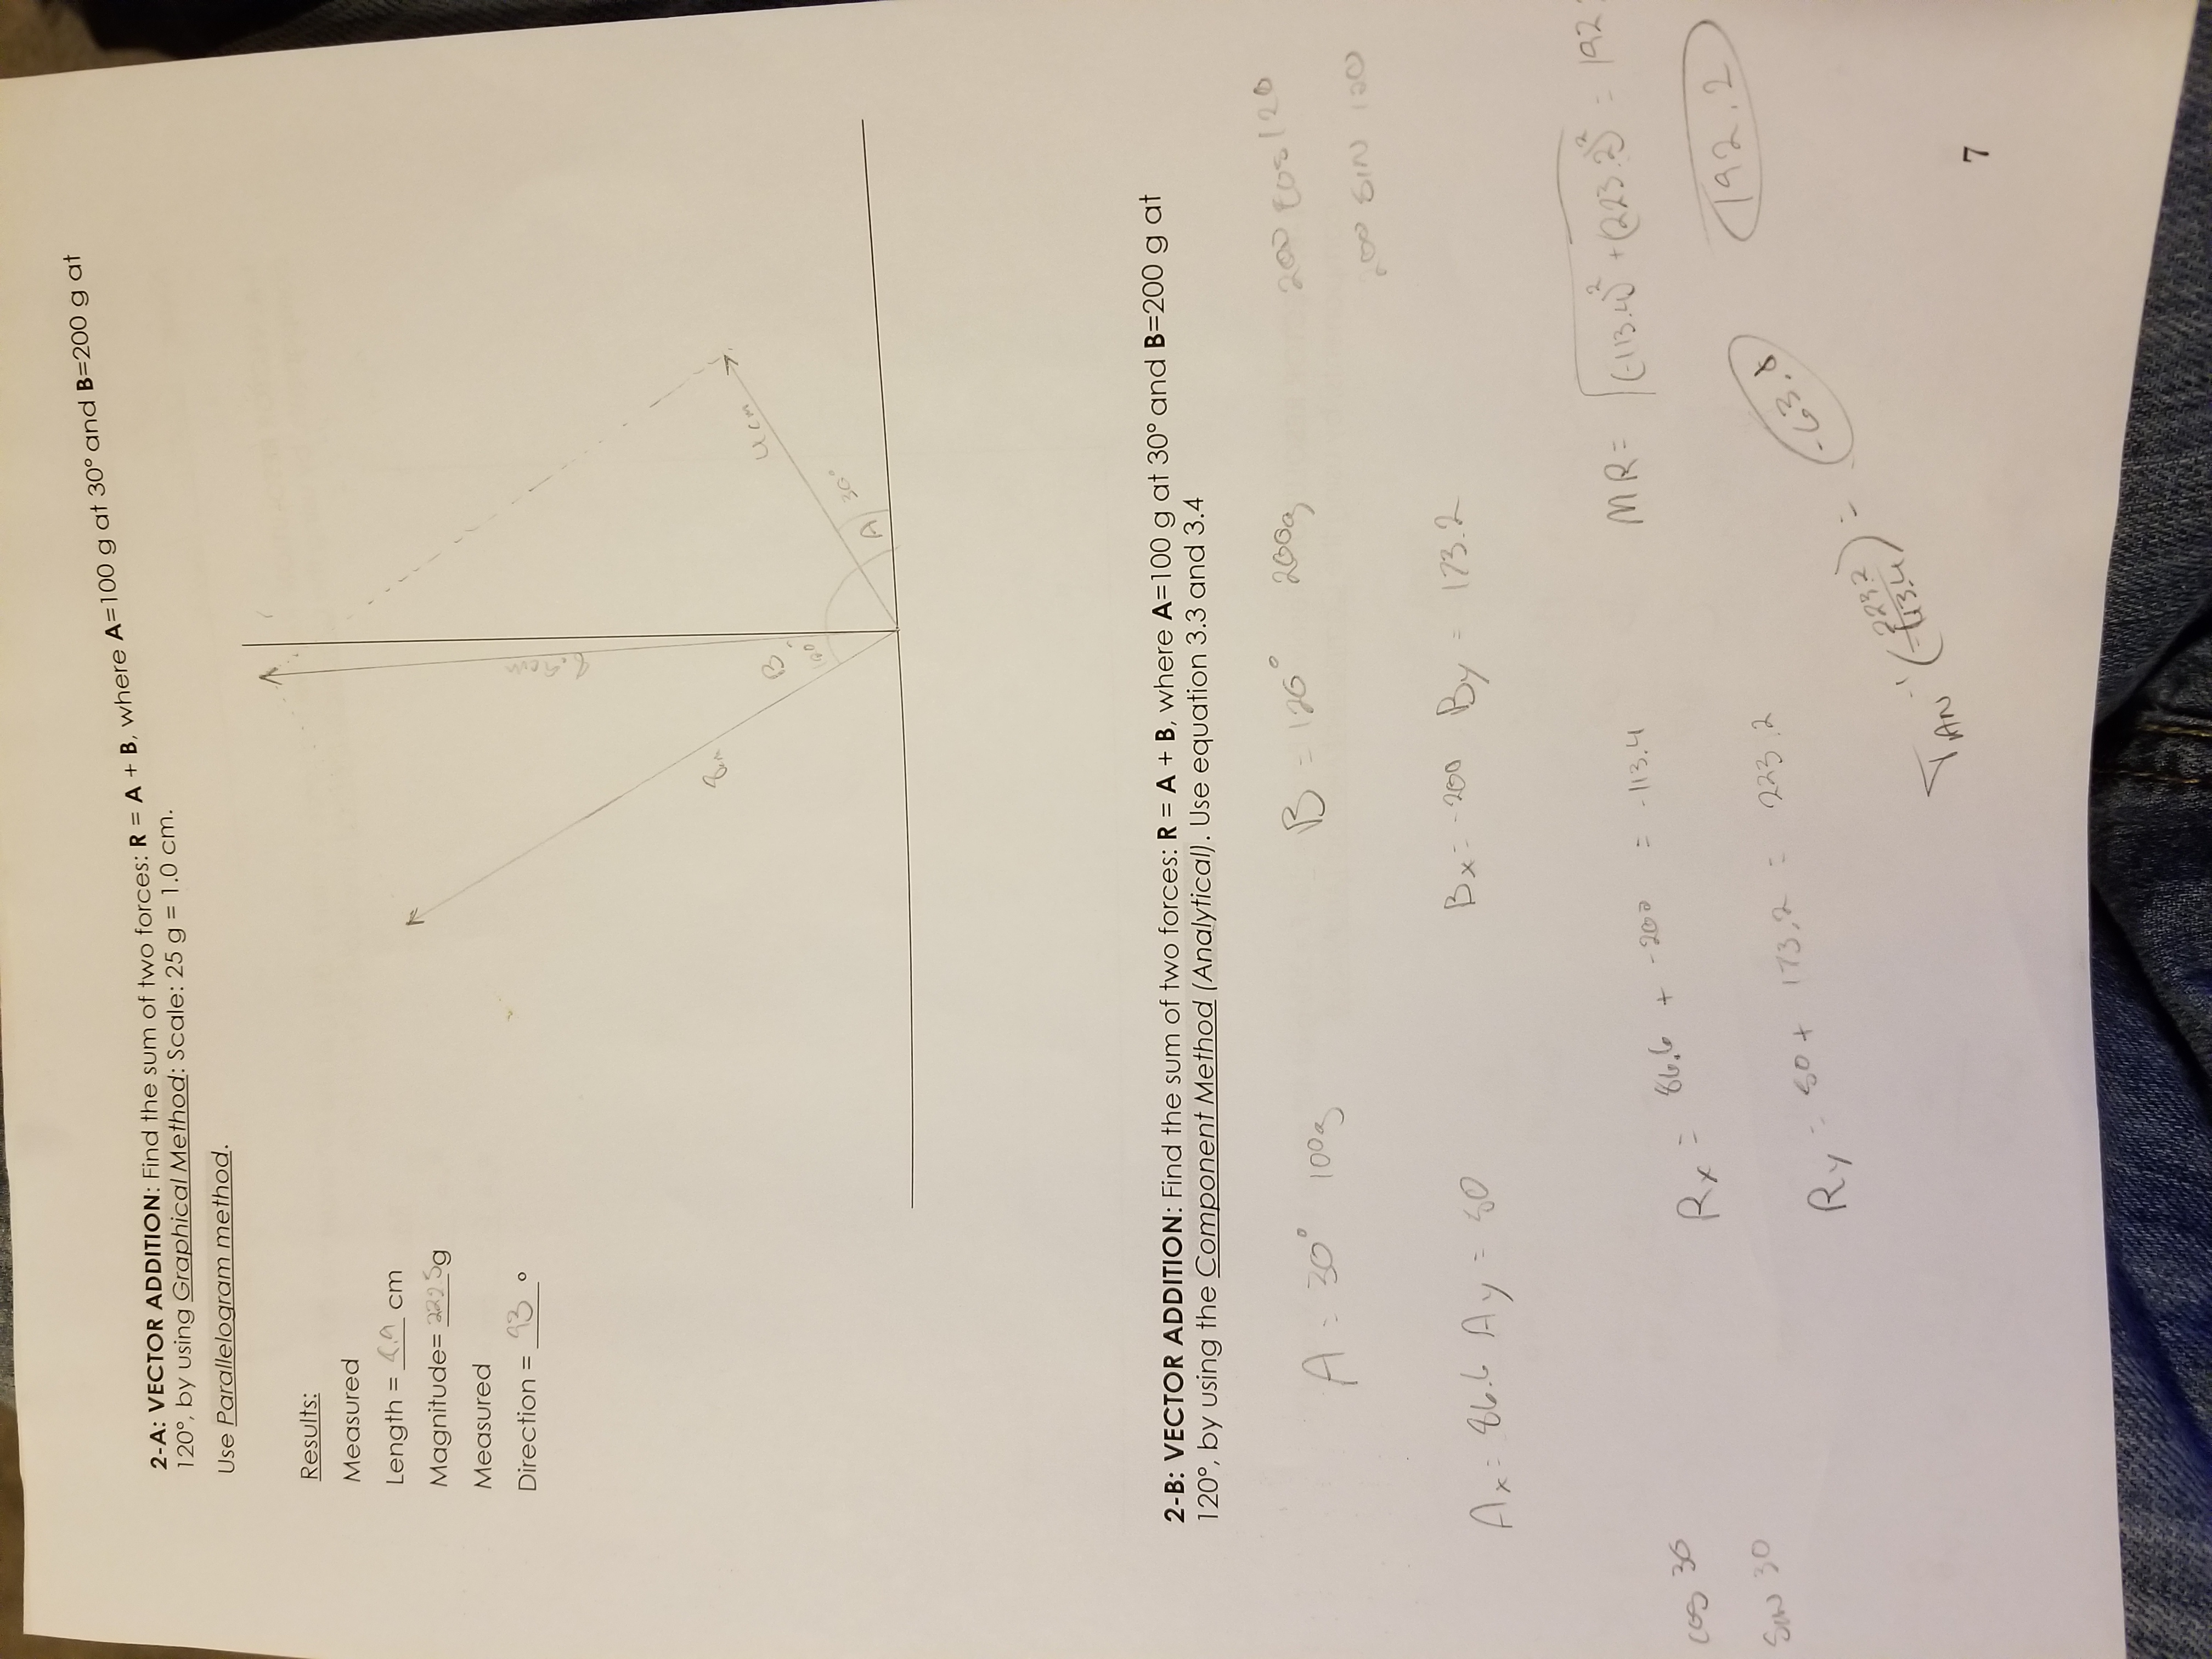 2-A: VECTOR ADDITION: Find the sum of two forces: R = A + B, where A=100 g at 30° and B=200 g at
120°, by using Graphical Method: Scale: 25 g = 1.0 cm.
Use Parallelogram method.
Results:
Measured
Length = 8.9 cm
Magnitude= 222.5g
Measured
Direction = 93 °
8.9cm
8cm
B
120°
4cm
A 30°
2-B: VECTOR ADDITION: Find the sum of two forces: R = A + B, where A=100 g at 30° and B=200 g at
120°, by using the Component Method (Analytical). Use equation 3.3 and 3.4
A = 30° 100g B = 120° 200g 200 cos 120
200 SIN 120
Ax = 86.6 Ay = 50 Bx = -200 By = 173.2
MR = √(-113.4)² + (223.2)² = 192
cos 30 Rx = 86.6 + -200 = -113.4
192.2
Sin 30 Ry = 50 + 173.2 = 223.2
TAN⁻¹ (223.2/-113.4) = -63.8
7